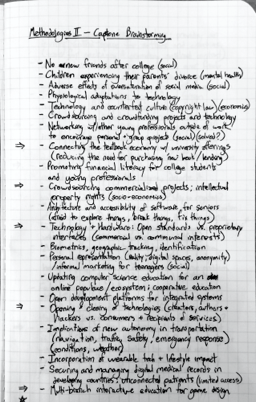 Methodologies II — Capstone Brainstorming
- No new friends after college (social)
- Children experiencing their parents' divorce (mental health)
- Adverse effects of oversaturation of social media (social)
- Physiological adaptations to technology
- Technology and counterfeit culture (copyright law/economics)
- Crowdsourcing and crowdfunding projects and technology
- Networking w/ other young professionals outside of work
to encourage personal + group projects (social) (solved?)
⇒ - Connecting the textbook economy w/ university offerings
(reducing the need for purchasing new books/lending)
- Promoting financial literacy for college students
and young professionals
⇒ - Crowdsourcing commercialized projects; intellectual
property rights (socio-economics)
- Architecture and accessibility of software, for seniors
(afraid to explore things, break things, fix things)
⇒ - Technology + Hardware: Open standards vs. proprietary
interfaces (commercial vs. communal interests)
- Biometrics, geographic tracking, identification
- Personal representation (digital spaces, anonymity)
/ informal marketing for teenagers (social)
- Updating computer science education for an
online populace/ecosystem; cooperative education
- Open development platforms for integrated systems
⇒ - Opening + closing of technologies (creators, authors +
hackers vs. consumers + recipients of services)
- Implications of new autonomy in transportation
(navigation, traffic, safety, emergency response)
conditions, weather)
- Incorporation of wearable tech + lifestyle impact
- Securing and managing digital medical records in
developing countries; disconnected patients (limited access)
⇒ - interactive education for game design